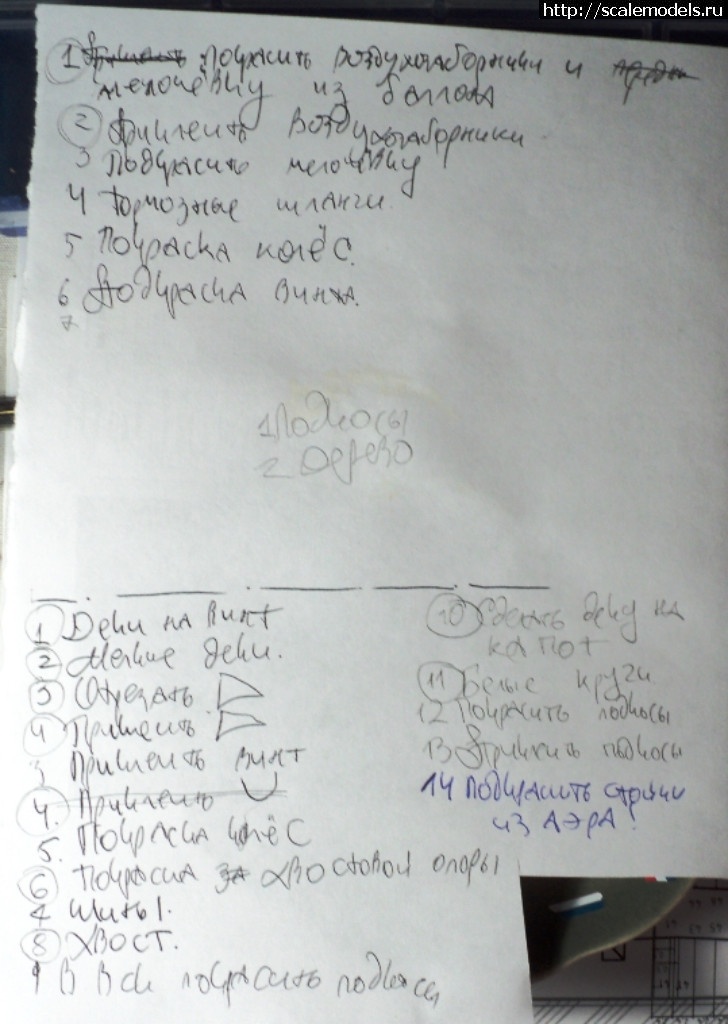 http://scalemodels.ru
1 Приклеить покрасить воздухозаборники и
мелочёвку из баллона
2 Приклеить воздухозаборники
3 Подкрасить мелочёвку
4 Тормозные шланги
5 Покраска колёс.
6 Подкраска винта.
7
1 Подкосы
2 Дерево
1 Деки на винт
2 Мелкие деки.
3 Отрезать
4 Приклеить
3 Приклеить винт
4. Приклеить
5. Покраска колёс
6 Покраска за хвостовой опоры
7 Шиты.
8 Хвост.
9 В покрасить подкосы
10 Сделать деку на
капот
11 Белые круги.
12 Покрасить подкосы
13 Приклеить подкосы
14 Подкрасить стойки
из АЭРА.